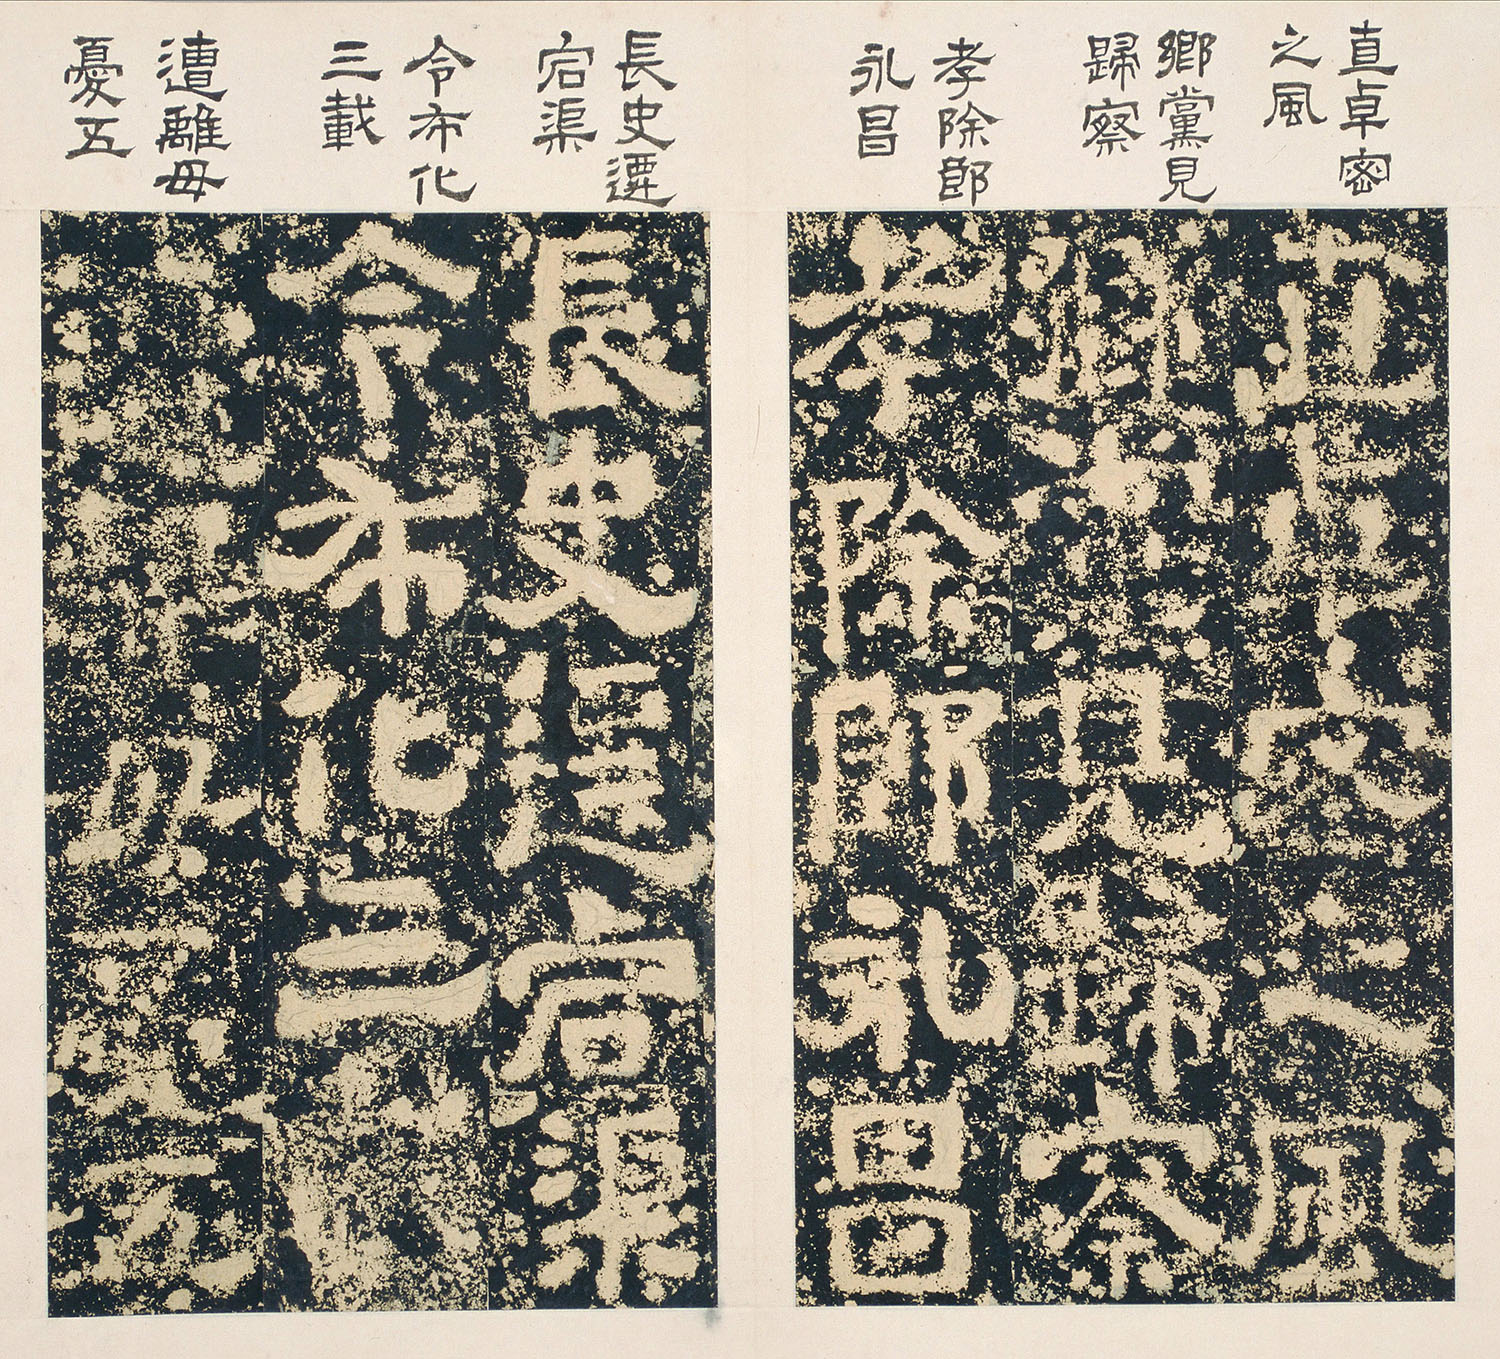 直卓密
之風
鄉黨見
歸察
孝除郎
永昌
長史遷
宕渠
令布化
三載
遭離母
憂五
直卓密之風
鄉黨見歸察
孝除郎永昌
長史遷宕渠
令布化三載
遭離母憂五